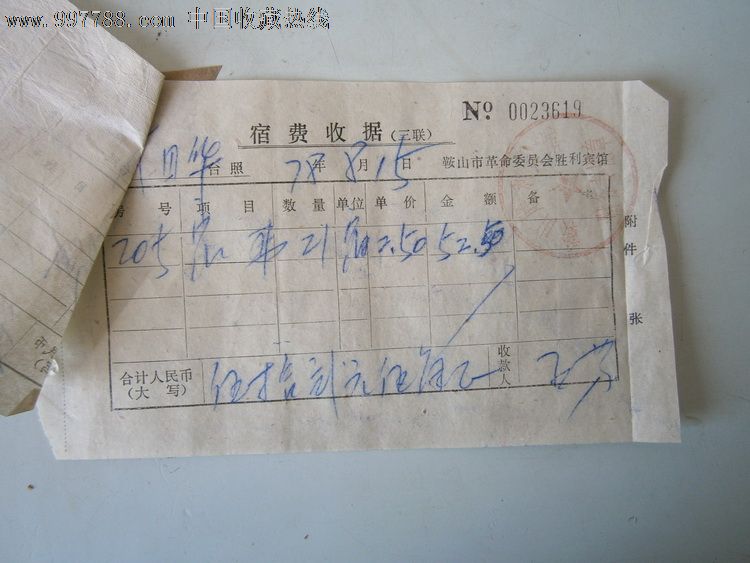 www.997788.com 中国收藏热线
No 0023619
宿费收据(三联)
台照 78年8月15日 鞍山市革命委员会胜利宾馆
房号 项目 数量 单位 单价 金额 备
205 21 2.50 52.50
附件
张
合计人民币(大写) 伍拾贰元伍角正 收款人